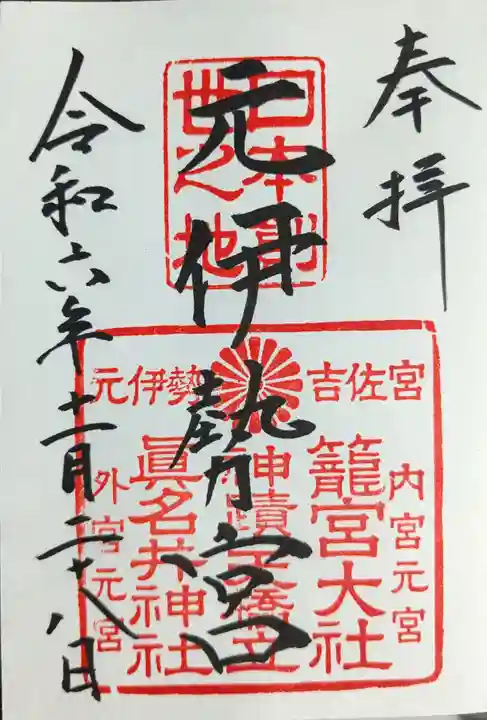 奉拝
日本創
世之地
元伊勢宮
吉佐宮
元伊勢
内宮元宮
籠宮大社
神蹟天橋立
眞名井神社
外宮元宮
令和六年十一月二十八日